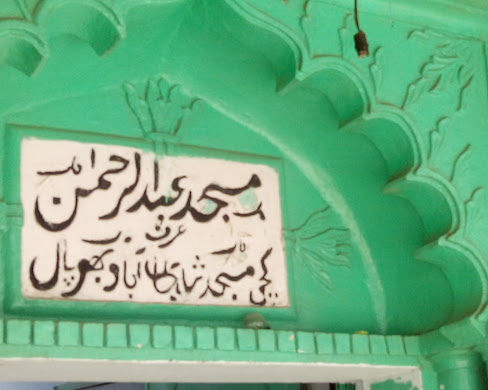 مسجد عبدالرحمن
عرف
کچی مسجد شاہجہاں آباد بھوپال